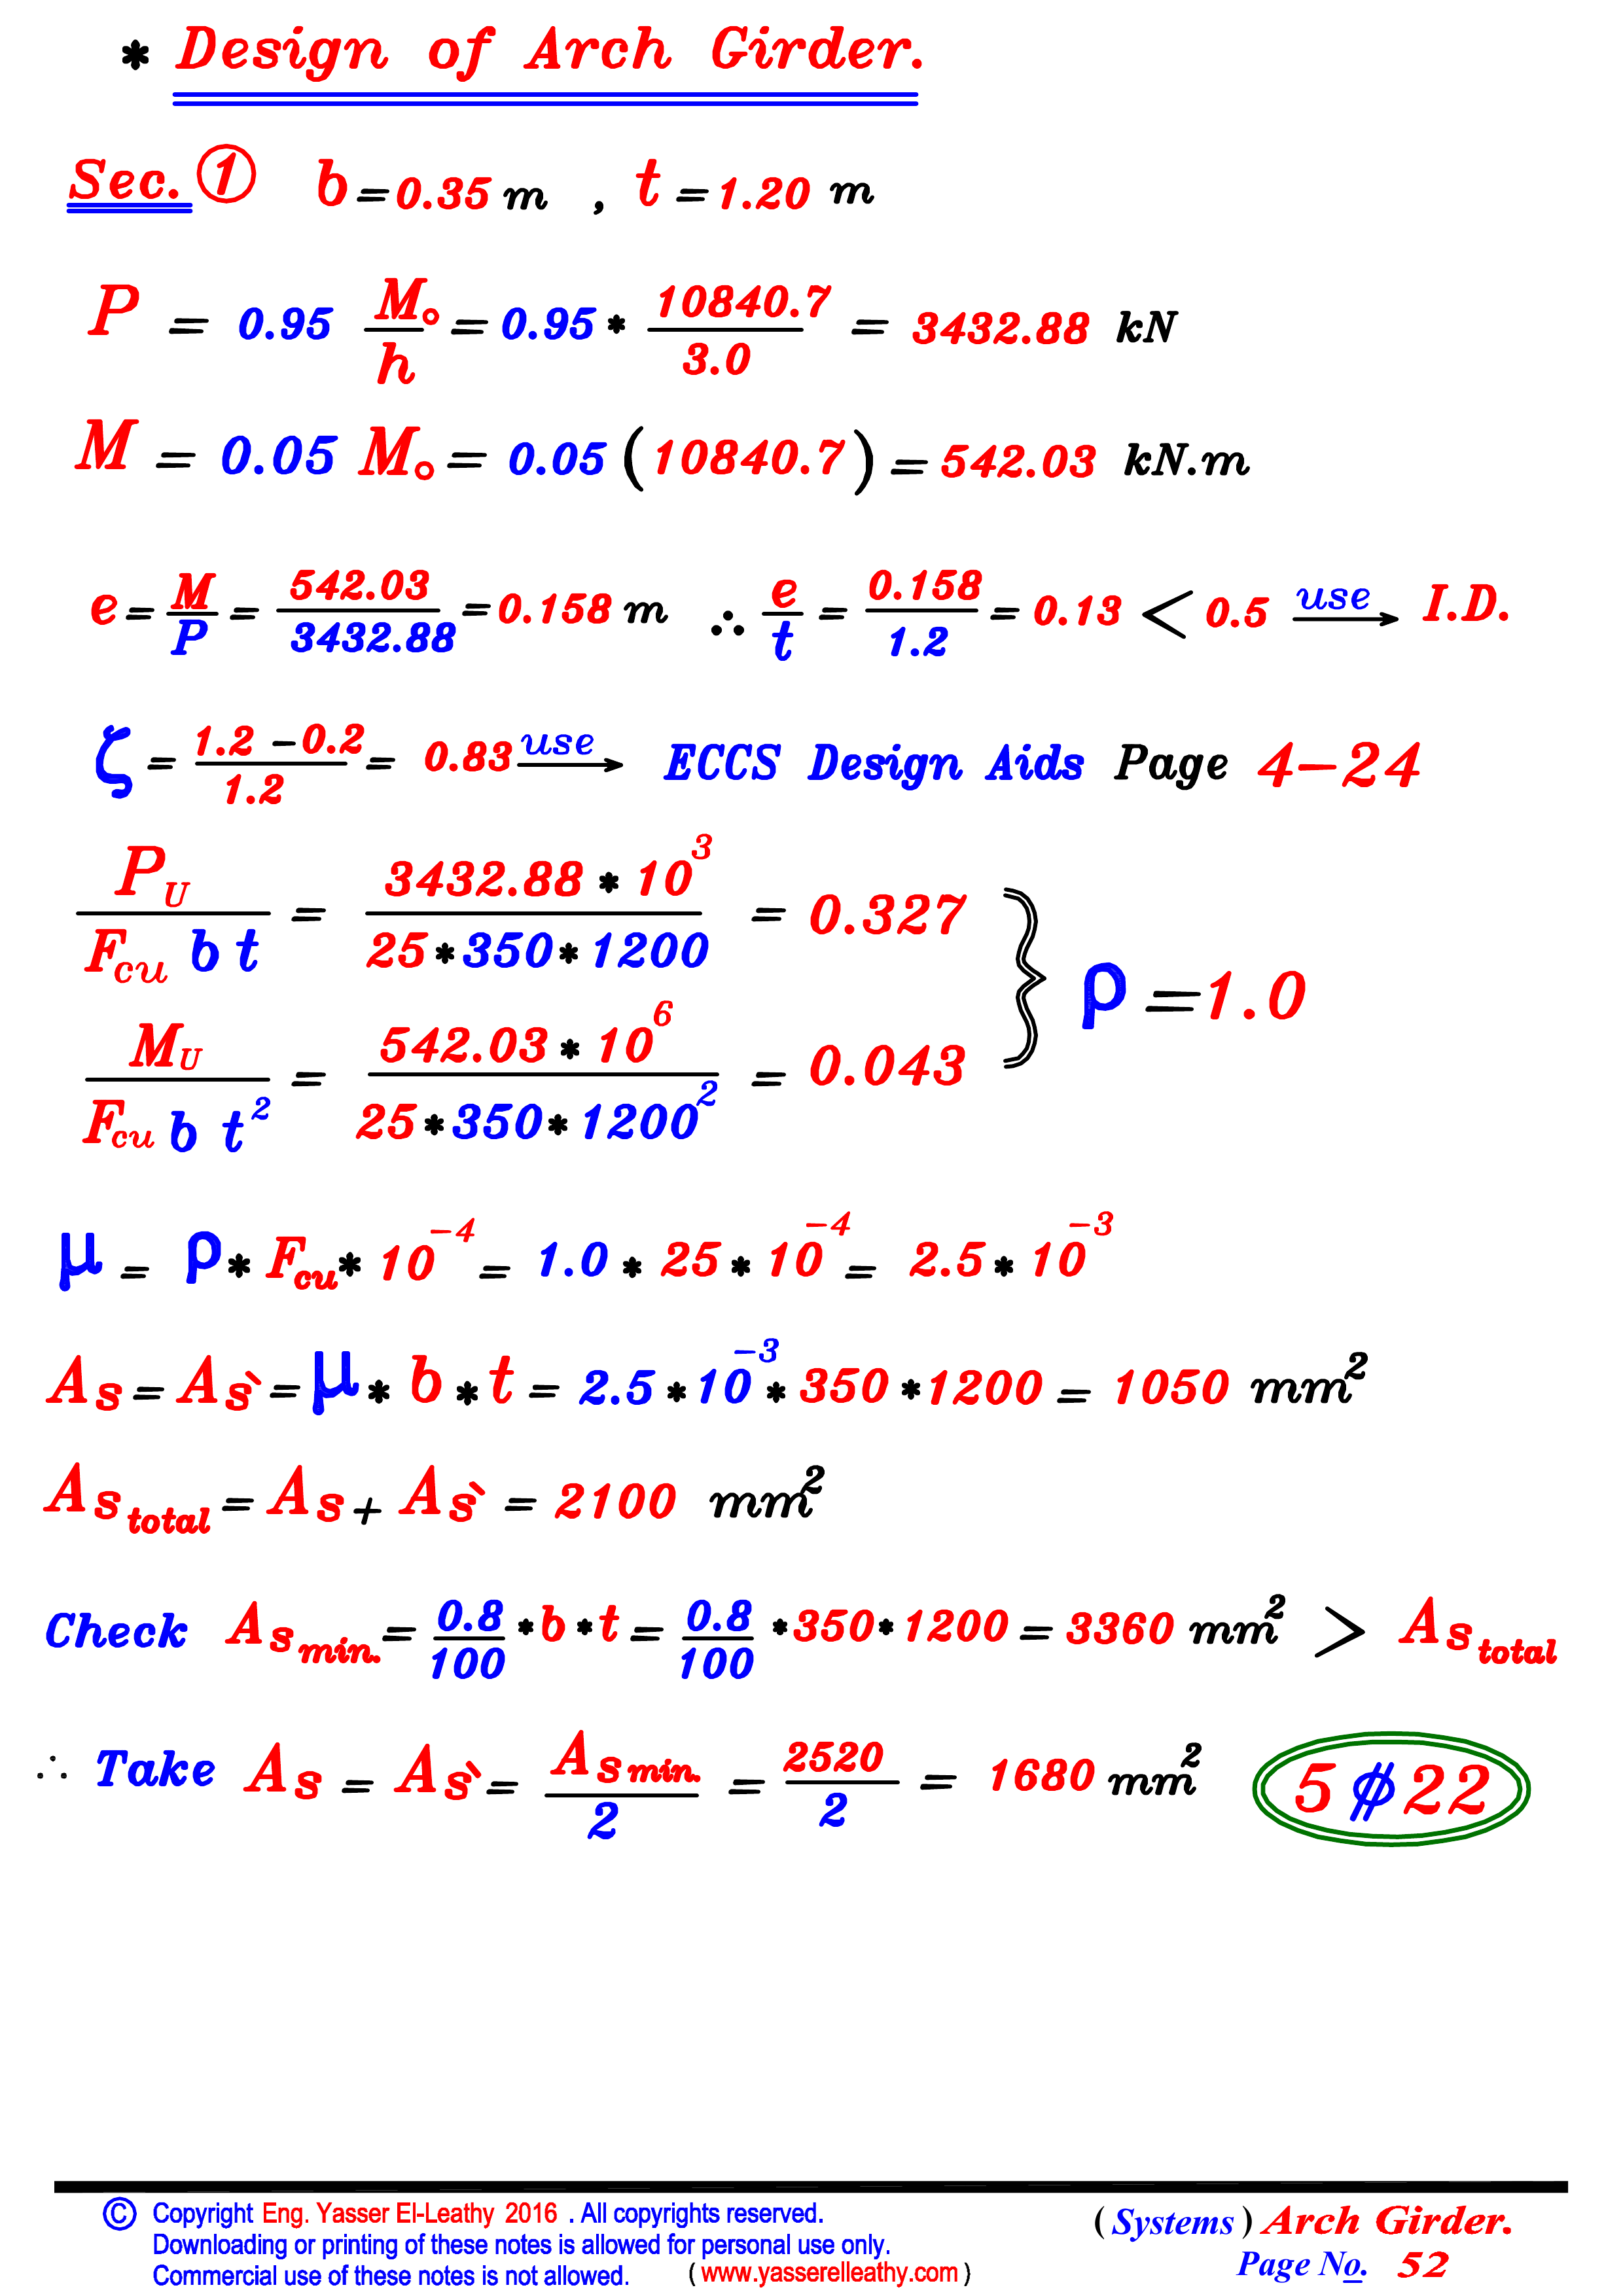 * Design of Arch Girder.
Sec. ① b = 0.35 m , t = 1.20 m
P = 0.95 M₀/h = 0.95 * 10840.7/3.0 = 3432.88 kN
M = 0.05 M₀ = 0.05 (10840.7) = 542.03 kN.m
e = M/P = 542.03/3432.88 = 0.158 m ∴ e/t = 0.158/1.2 = 0.13 < 0.5 use → I.D.
ζ = 1.2 - 0.2/1.2 = 0.83 use → ECCS Design Aids Page 4-24
P_U/F_cu b t = 3432.88 * 10³/25 * 350 * 1200 = 0.327
ρ = 1.0
M_U/F_cu b t² = 542.03 * 10⁶/25 * 350 * 1200² = 0.043
μ = ρ * F_cu * 10⁻⁴ = 1.0 * 25 * 10⁻⁴ = 2.5 * 10⁻³
As = As` = μ * b * t = 2.5 * 10⁻³ * 350 * 1200 = 1050 mm²
As total = As + As` = 2100 mm²
Check As min. = 0.8/100 * b * t = 0.8/100 * 350 * 1200 = 3360 mm² > As total
∴ Take As = As` = As min./2 = 2520/2 = 1680 mm² 5 ⌀ 22
© Copyright Eng. Yasser El-Leathy 2016 . All copyrights reserved.
Downloading or printing of these notes is allowed for personal use only.
Commercial use of these notes is not allowed. ( www.yasserelleathy.com )
( Systems ) Arch Girder.
Page No. 52